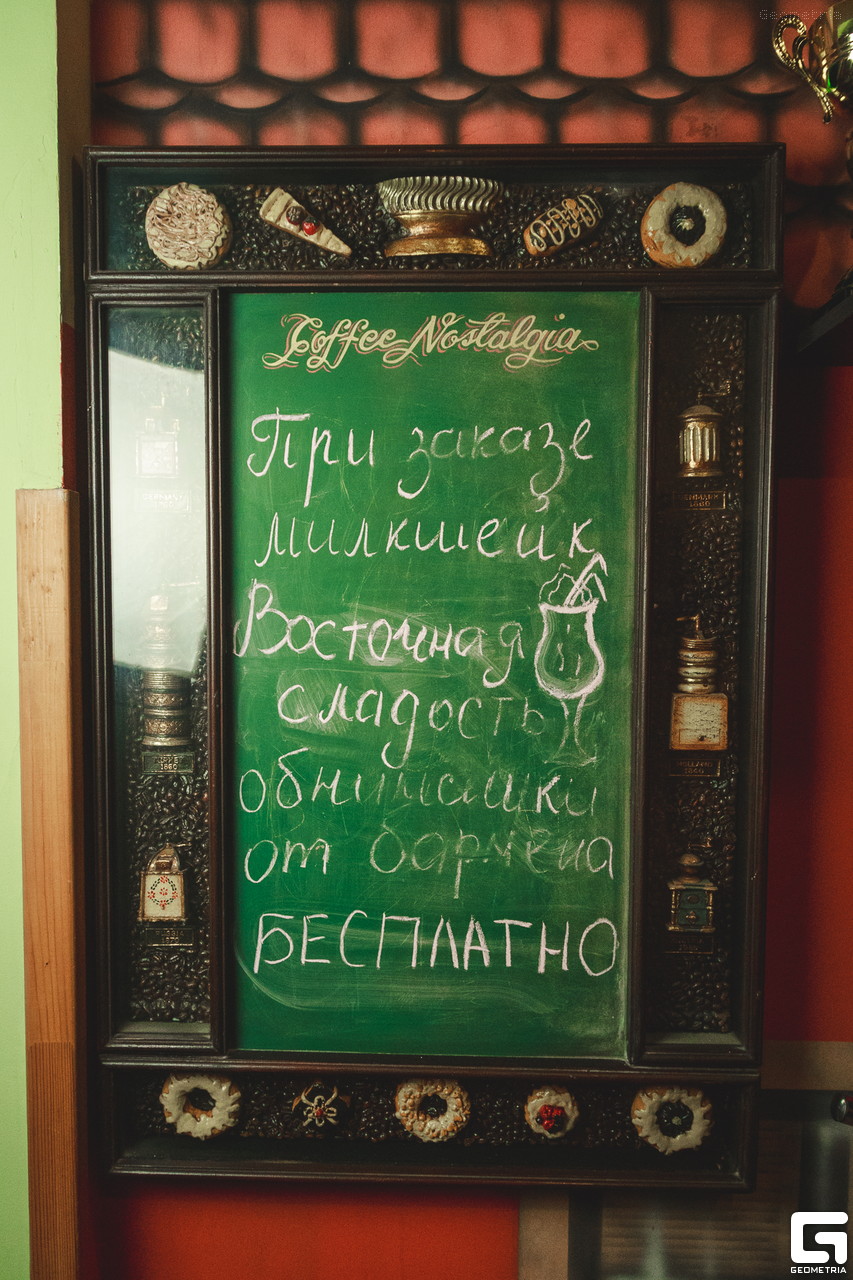 Geometria
Coffee Nostalgia
При заказе
милкшейк
Восточная
сладость
обнимашки
от бармена
БЕСПЛАТНО
1860
1860
GEOMETRIA